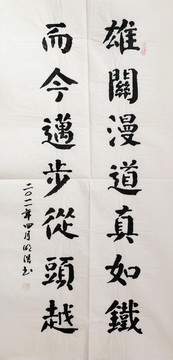 雄關漫道真如鐵
而今邁步從頭越
二〇一一年四月